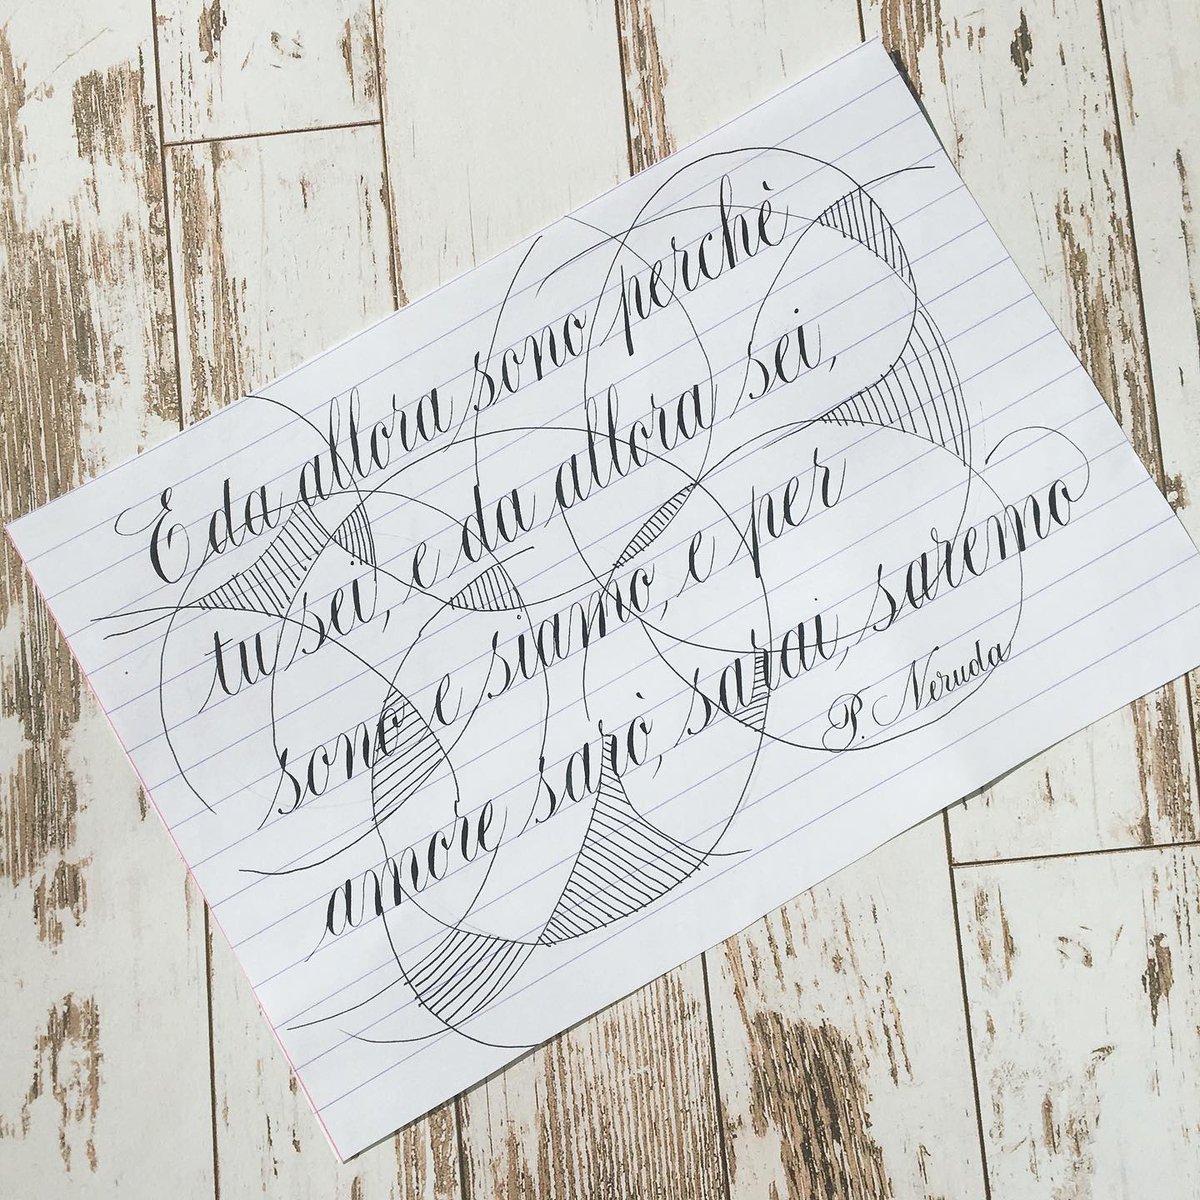 E da allora sono perchè
tu sei, e da allora sei,
sono e siamo, e per
amore sarò, sarai, saremo
P. Neruda